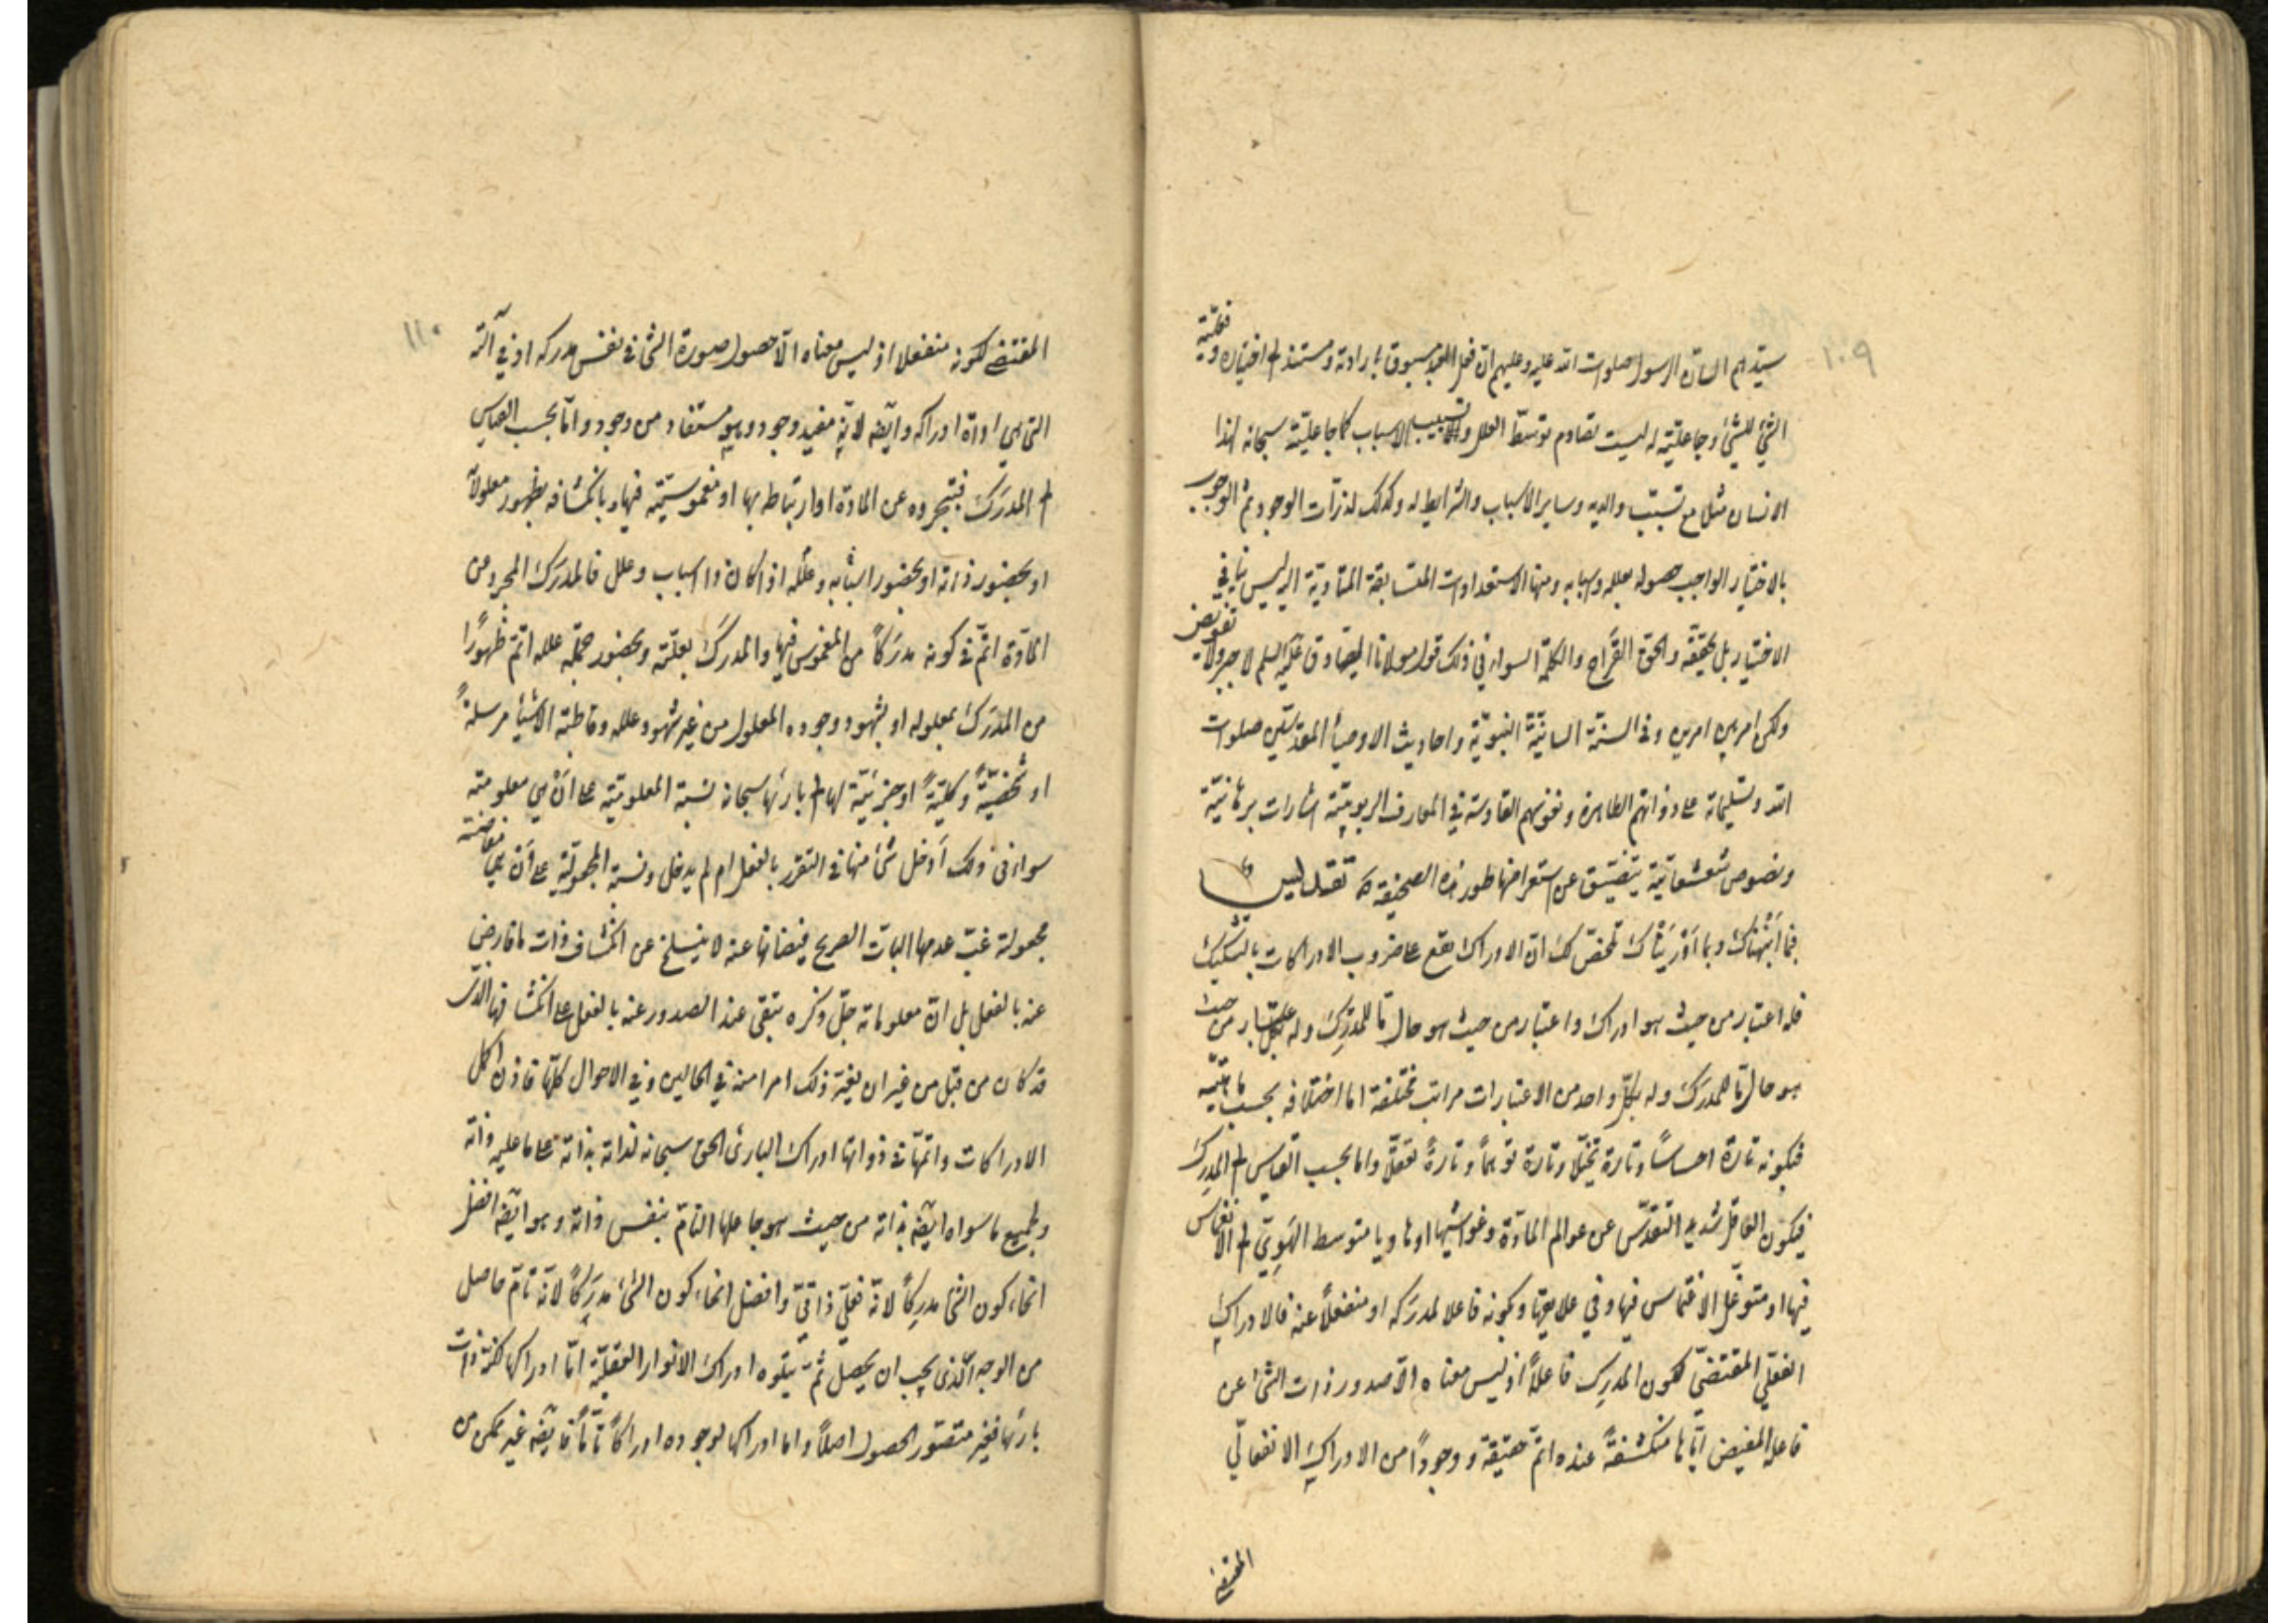 ١٠٩
سيدهم السان الرسول صلوات الله عليه وعليهم ان فعل العبد مسبوق بارادته ومستند الى اختياره وفعلية
الشئ للشئ وجاعليته له ليست تقادم توسط العلل والاسباب كما جاعليته سبحانه لهذا
الانسان مثلا مع تسبب والديه وساير الاسباب والشرايط له وكذلك لذرات الوجود ثم الوجوب
بالاختيار الواجب حصوله بعلله واسبابه ومنها الاستعدادات المتسابقة المتادية اليه ليس ينافي
الاختيار بل يحققه والحق القراح والكلمة السواء في ذلك قول مولانا الصادق عليه السلم لا جبر ولا تفويض
ولكن امر بين امرين وفى السنة السانية النبوية واحاديث الاوصياء المقدسين صلوات
الله وتسليماته على ذواتهم الطاهرة ونفوسهم القادسة في المعارف الربوبية اشارات برهانية
ونصوص شعشعانية يتضيق عن استعراضها طور هذه الصحيفة تقديس
فبما انبهناك وبما ادريناك تحصل لك ان الادراك يقع على ضروب الادراكات بالتشكيك
فله اعتبار من حيث هو ادراك واعتبار من حيث هو حال ما للمدرِك وله اعتبار من حيث
هو حال ما للمدرَك وله بكل واحد من الاعتبارات مراتب مختلفة اما اختلافه بحسب ماهيته
فبكونه تارة احساسًا وتارة تخيلا وتارة توهمًا وتارةً تعقلًا واما بحسب القياس الى المدرِك
فبكون العاقل شديد التقدس عن عوالم المادة وغواشيها او هاويا متوسط الهَوِيّ الى الانغماس
فيها او متوغل الانغماس فيها وفي علايقها وبكونه فاعلا لمدرَكه او منفعلًا عنه فالادراك
الفعلي المقتضي لكون المدرِك فاعلًا اذ ليس معناه الا صدور ذات الشئ عن
فاعله المفيض اياها منكشفةً عنده اتم حقيقة ووجودًا من الادراك الانفعالي
المقتضى
١١٠
المقتضى لكونه منفعلا اذ ليس معناه الا حصول صورة الشئ في نفس مدركه او في آلته
التي هي اداة ادراكه وايضا لانه مفيد وجود وهو مستفاد من وجود واما بحسب القياس
الى المدرَك فبتجرده عن المادة او ارتباطه بها او مغموسيته فيها وبانكشافه بظهور معلولا
او بحضور ذاته او بحضور اسبابه وعلله اذا كان ذا اسباب وعلل فالمدرَك المجرد عن
المادة اتم في كونه مدرَكًا من المغموس فيها والمدرَك بعلته وبحضور جملة علله اتم ظهورًا
من المدرَك بمعلوله او بشهود وجوده المعلول من غير شهود علله وقاطبة الاشياء مرسلةً
او شخصيةً وكليةً او جزئية لها الى بارئها سبحانه نسبة المعلومية على ان هي معلومته
سواء في ذلك أدخل شئ منها في التقرر بالفعل ام لم يدخل ونسبة المجعولية على أن هي مفاضته
مجعولة غبّ عدمها البات الصريح فيضانها عنه لا ينسلخ عن انكشاف ذات ما فارضٍ
عنه بالفعل بل ان معلوماته جلّ ذكره تبقى عند الصدور عنه بالفعل على انكشافها الذى
قد كان من قبل من غير ان يغير ذلك امرا منه في الحالين وفي الاحوال كلها فاذن اكمل
الادراكات واتمها في ذواتها ادراك البارئ الحق سبحانه لذاته بذاته على ما عليه ذاته
ولجميع ما سواه ايضا بذاته من حيث هو جاعلها التام بنفس ذاته وهو ايضا افضل
انحاء كون الشئ مدرِكًا لانه فعلي ذاتي وافضل انحاء كون الشئ مدرَكًا لانه تام حاصل
من الوجه الذى يجب ان يحصل ثم يتلوه ادراك الانوار العقلية اما ادراكها لكنه ذات
بارئها فغير متصور الحصول اصلًا واما ادراكها لوجوده ادراكًا تامًا فايضا غير ممكن من